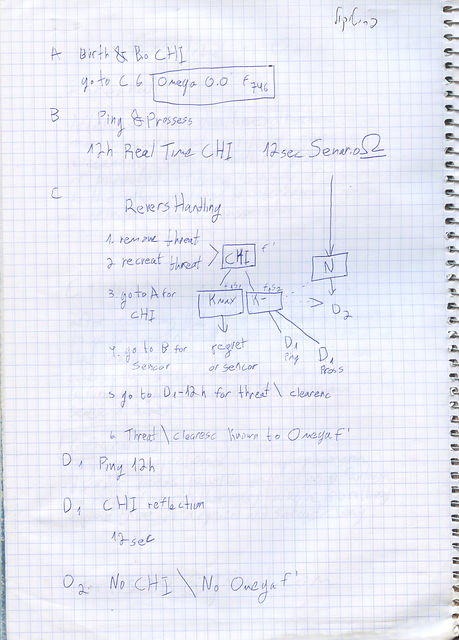 A Birth & Bo CHI
go to C 6 Omega 0.0 F746
B Ping & Prossess
12h Real Time CHI 12sec Senario Ω
C
Revers Handling
1. remove threat
2. recreat threat
CHI f'
N
3. go to A for
CHI
Kmax K-
D2
4. go to B for
Sensor
regret
or sensor
D1
Ping
D1
Proses
5. go to D1-12h for threat \ clearenc
6. Threat \ clearesc Known to Omega f'
D1 Ping 12h
D1 CHI reflection
12sec
D2 No CHI \ No Omega f'